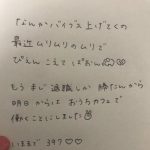 「なんかバイブス上げとくの
最近ムリムリのムリで
ぴえん こえて ぱおん
もう まじ 退職しか 勝たんから
明日 からは おうちカフェで
働くことにしました
いままで 397♡♡